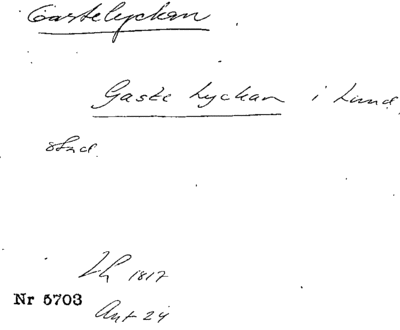 Gastelyckan
Gaste Lyckan i Lund
stad.
Lh 1817
Nr 5703
Ant 24